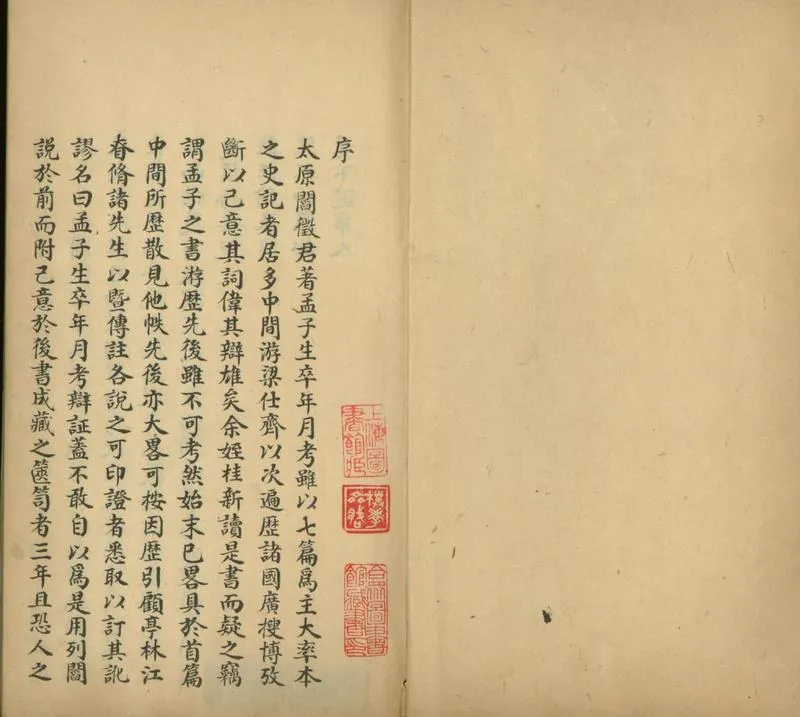 序
太原閻徵君著孟子生卒年月考雖以七篇爲主大率本
之史記者居多中間游梁仕齊以次遍歷諸國廣搜博攷
斷以己意其詞偉其辯雄矣余姪桂新讀是書而疑之竊
謂孟子之書游歷先後雖不可考然始末已畧具於首篇
中間所歷散見他帙先後亦大畧可桉因歷引顧亭林江
眘脩諸先生以暨傳註各說之可印證者悉取以訂其訛
謬名曰孟子生卒年月考辯証蓋不敢自以爲是用列閻
說於前而附己意於後書成藏之篋笥者三年且恐人之
上海圖書館臧
合眾圖書館藏書印